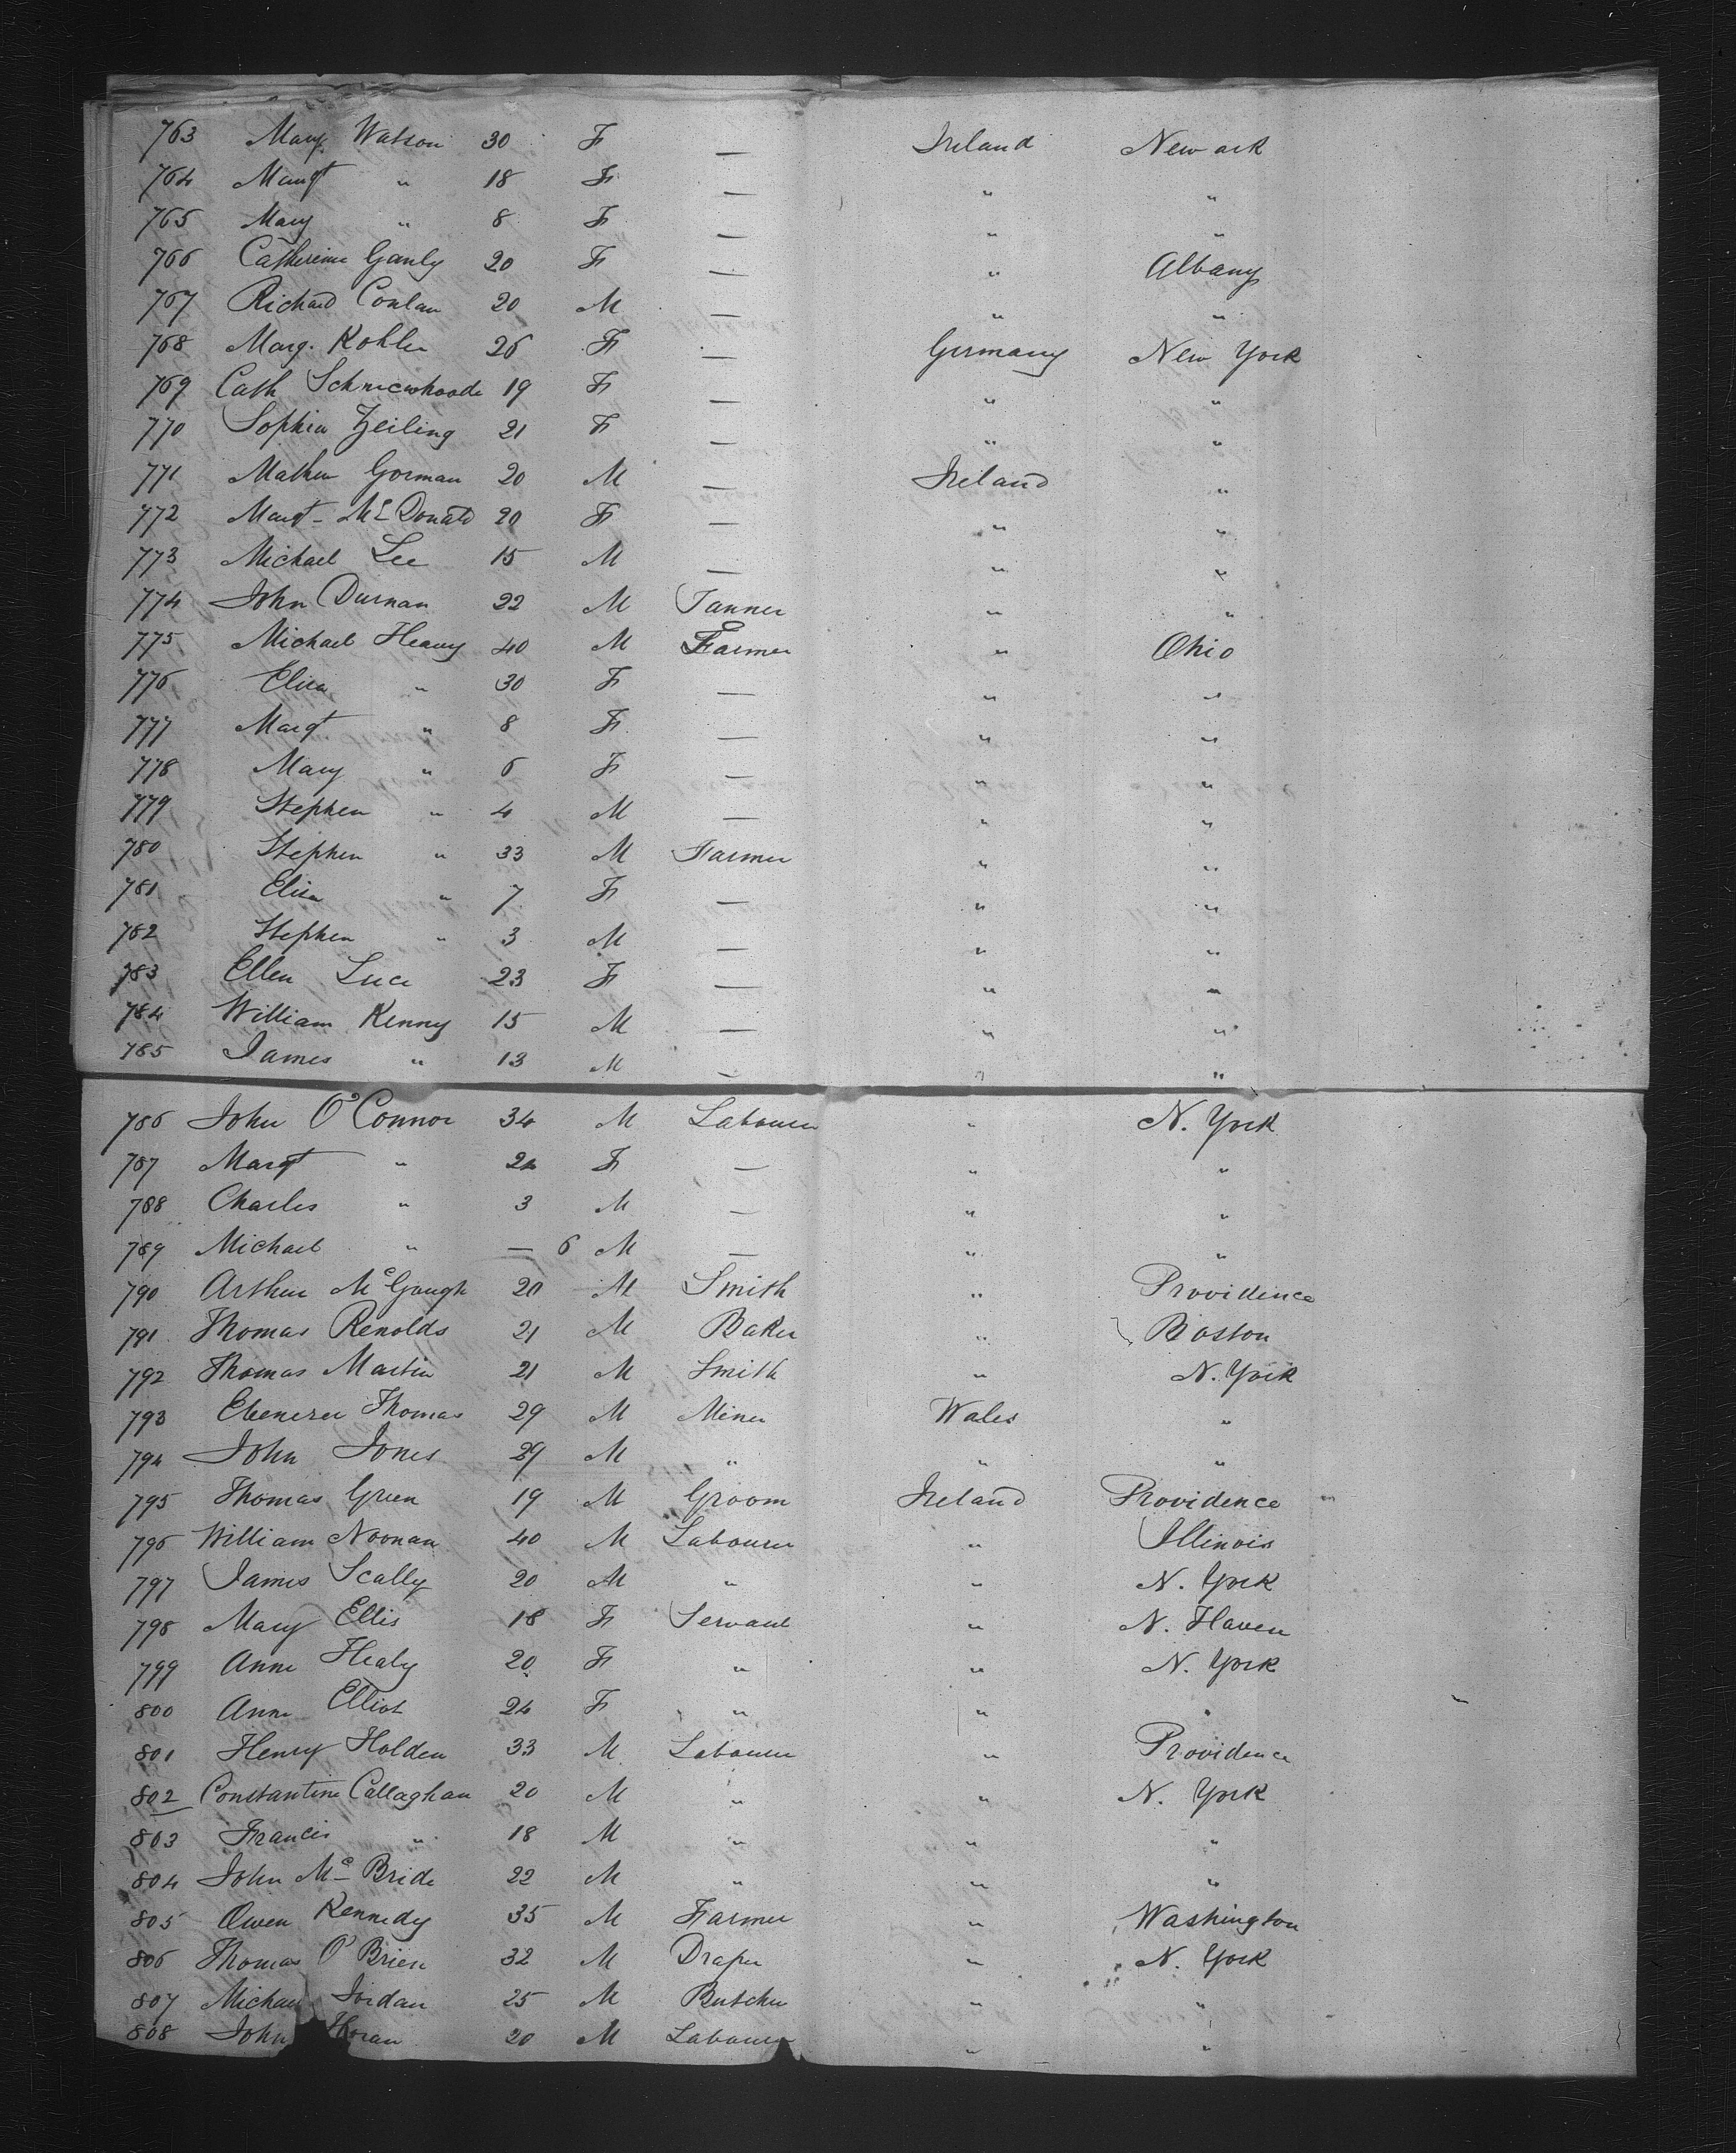 763 Mary Watson 30 F — Ireland Newark
764 Margt " 18 F — " "
765 Mary " 8 F — " "
766 Catherine Ganly 20 F — " Albany
767 Richard Conlan 20 M — " "
768 Marg. Kohler 26 F — Germany New York
769 Cath 19 F — " "
770 Sophia Zeiling 21 F — " "
771 Mathew Gorman 20 M — Ireland "
772 Margt McDonald 20 F — " "
773 Michael Lee 15 M — " "
774 John Durnan 22 M Tanner " "
775 Michael Heavy 40 M Farmer " Ohio
776 Eliza " 30 F — " "
777 Margt " 8 F — " "
778 Mary " 6 F — " "
779 Stephen " 4 M — " "
780 Stephen " 33 M Farmer " "
781 Eliza " 7 F — " "
782 Stephen " 3 M — " "
783 Ellen Luce 23 F — " "
784 William Kenny 15 M — " "
785 James " 13 M — " "
786 John O'Connor 34 M Labourer " N. York
787 Margt " 24 F — " "
788 Charles " 3 M — " "
789 Michael " — 6 M — " "
790 Arthur McGough 20 M Smith " Providence
791 Thomas Renolds 21 M Baker " Boston
792 Thomas Martin 21 M Smith " N. York
793 Ebenezer Thomas 29 M Miner Wales "
794 John Jones 29 M " " "
795 Thomas Green 19 M Groom Ireland Providence
796 William Noonan 40 M Labourer " Illinois
797 James Scally 20 M " " N. York
798 Mary Ellis 18 F Servant " N. Haven
799 Anne Healy 20 F " " N. York
800 Anne Elliot 24 F " " "
801 Henry Holden 33 M Labourer " Providence
802 Constantine Callaghan 20 M " " N. York
803 Francis " 18 M " " "
804 John McBride 22 M " " "
805 Owen Kennedy 35 M Farmer " Washington
806 Thomas O'Brien 32 M Draper " N. York
807 Michael Jordan 25 M Butcher " "
808 John Horan 20 M Labourer " "